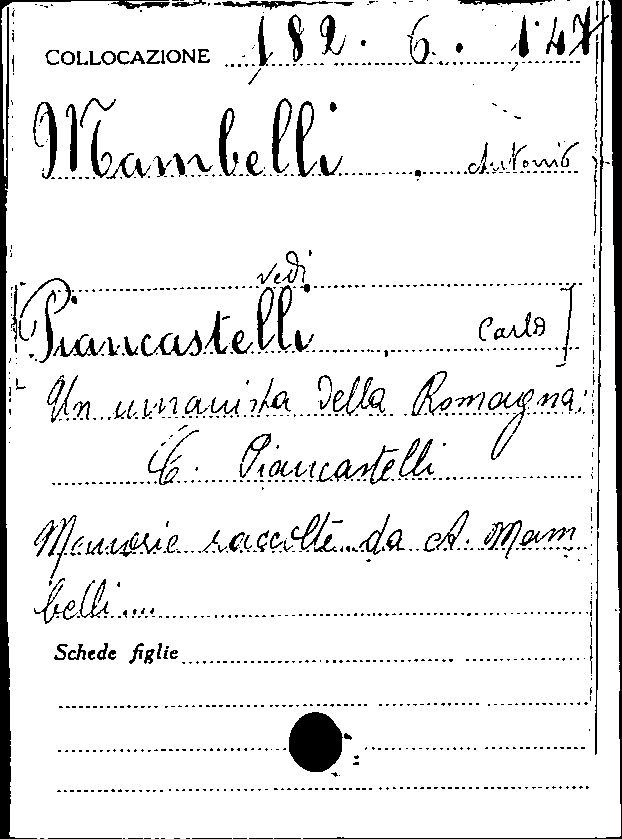 COLLOCAZIONE 182. 6. 147
Mambelli, Antonio
vedi
Piancastelli, Carlo]
Un umanista della Romagna:
C. Piancastelli
Memorie raccolte da A. Mam
belli....
Schede figlie